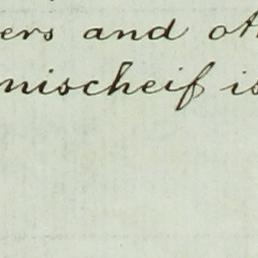 ers and ot
mischeif is